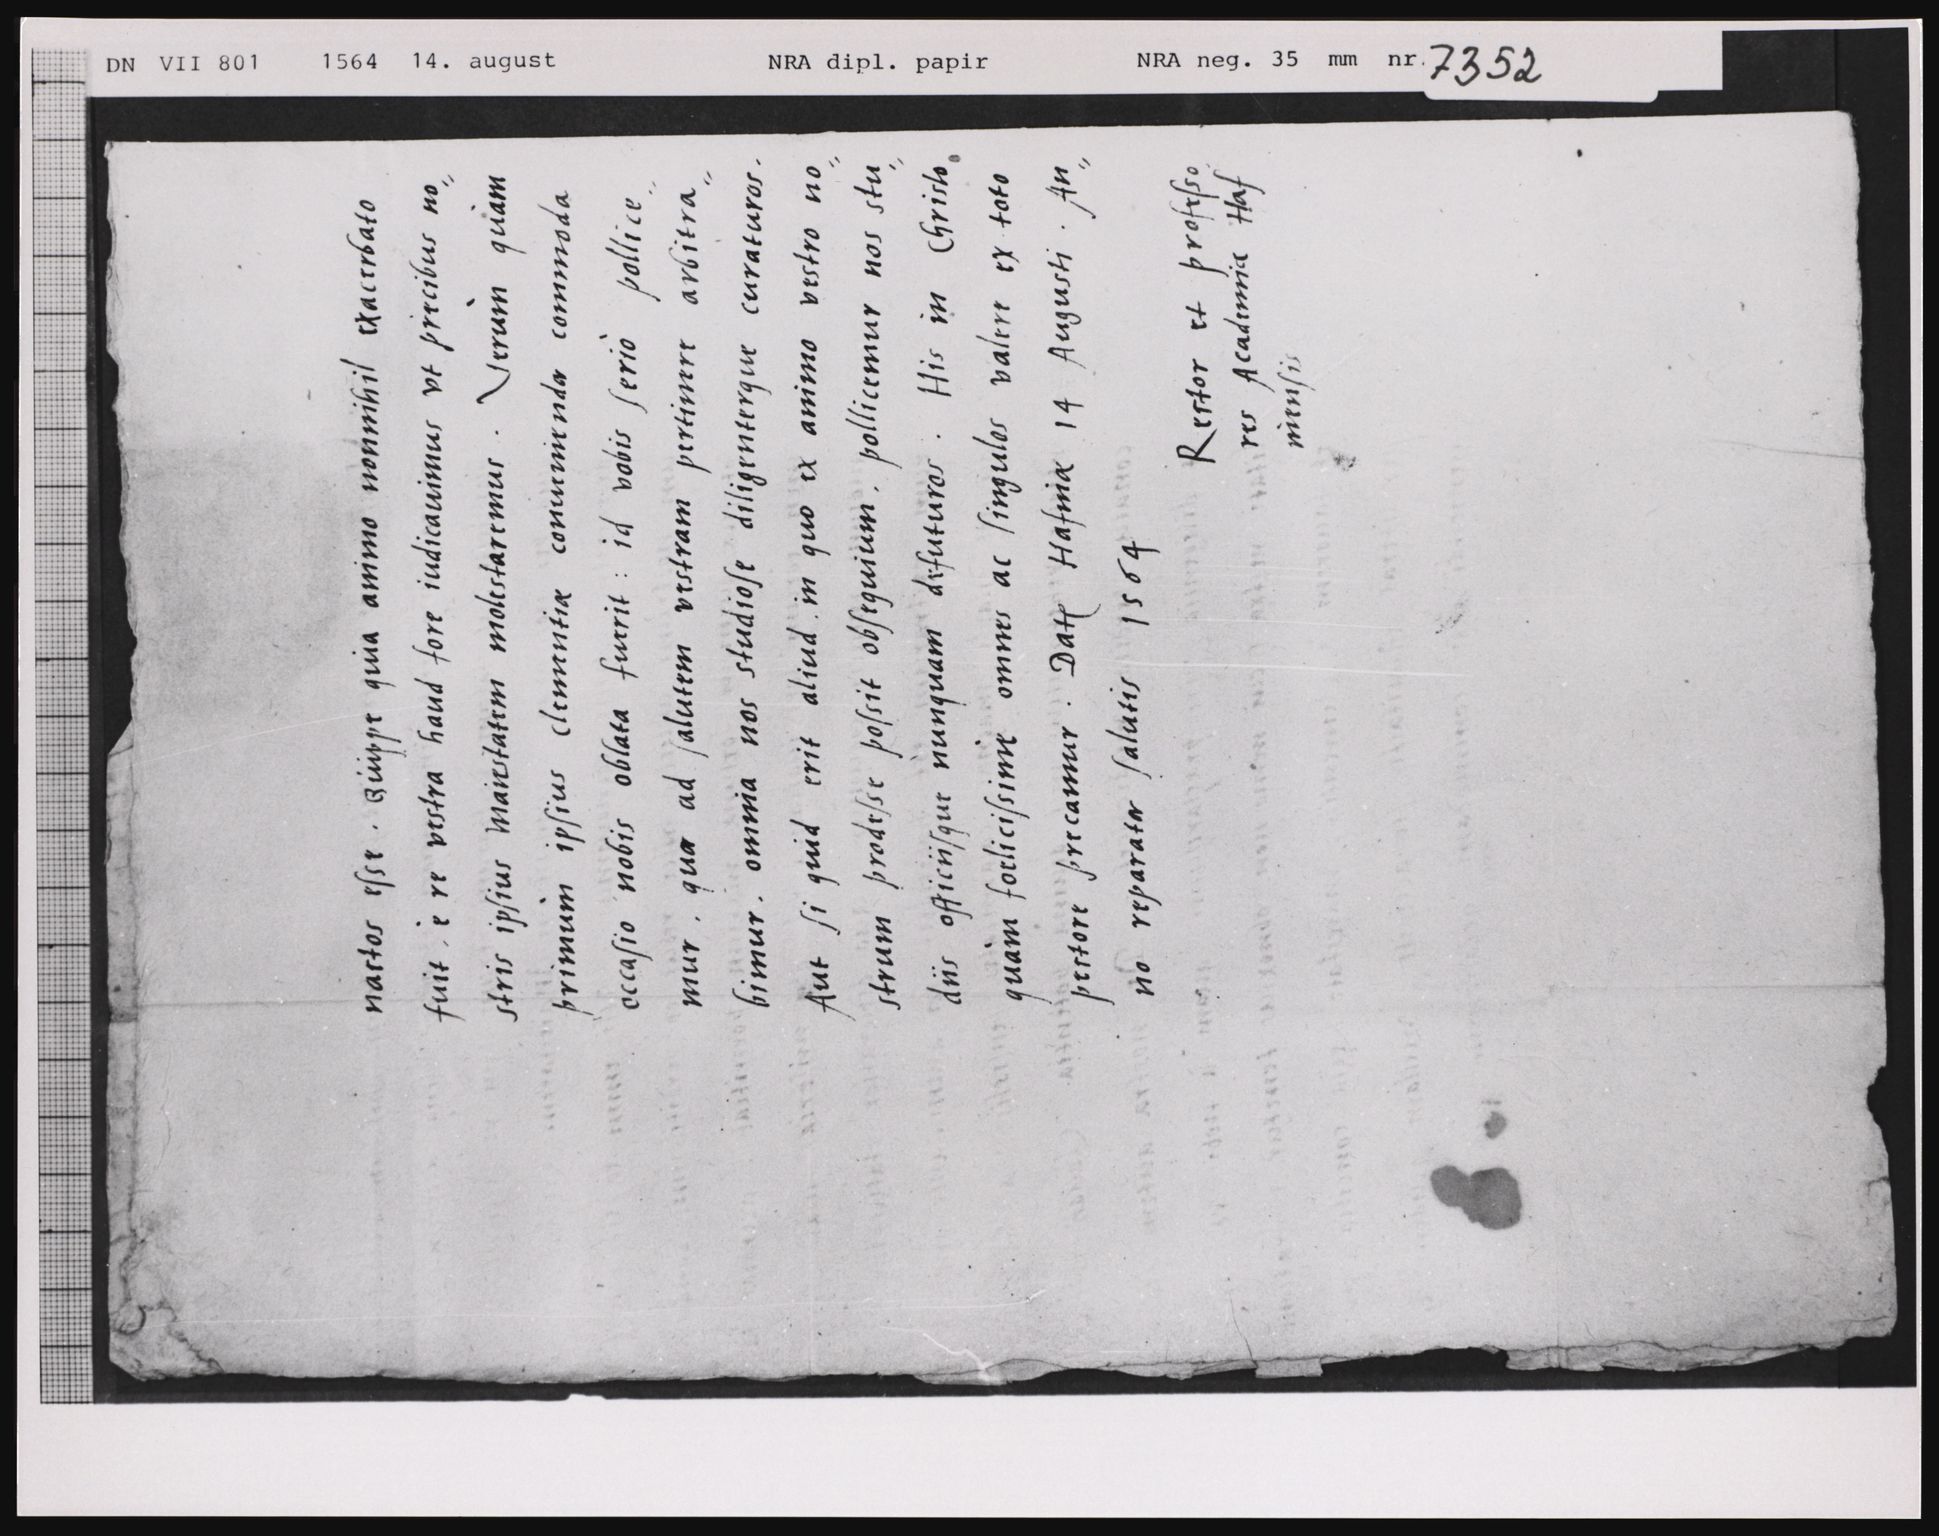 DN VII 801 1564 14. august NRA dipl. papir NRA neg. 35 mm nr. 7352
nactos esse. Quippe quia animo nonnihil exacerbato
fuit, è re vestra haud fore iudicauimus vt precibus no„
stris ipsius maiestatem molestaremus. Verùm quàm
primùm ipsius clementiæ conueniendæ commoda
occasio nobis oblata fuerit: id vobis seriò pollice„
mur, quæ ad salutem vestram pertinere arbitra„
bimur, omnia nos studiose diligenterque curaturos.
Aut si quid erit aliud in quo ex animo vestro no„
strum prodesse possit obsequium, pollicemur nos stu„
diis officiisque nunquam defuturos. His in Christo
quàm foelicissime omnes ac singulos valere ex toto
pectore precamur. Datæ Hafniæ 14 Augusti. An„
no reparatæ salutis 1564
Rector et professo
res Academiæ Haf
niensis